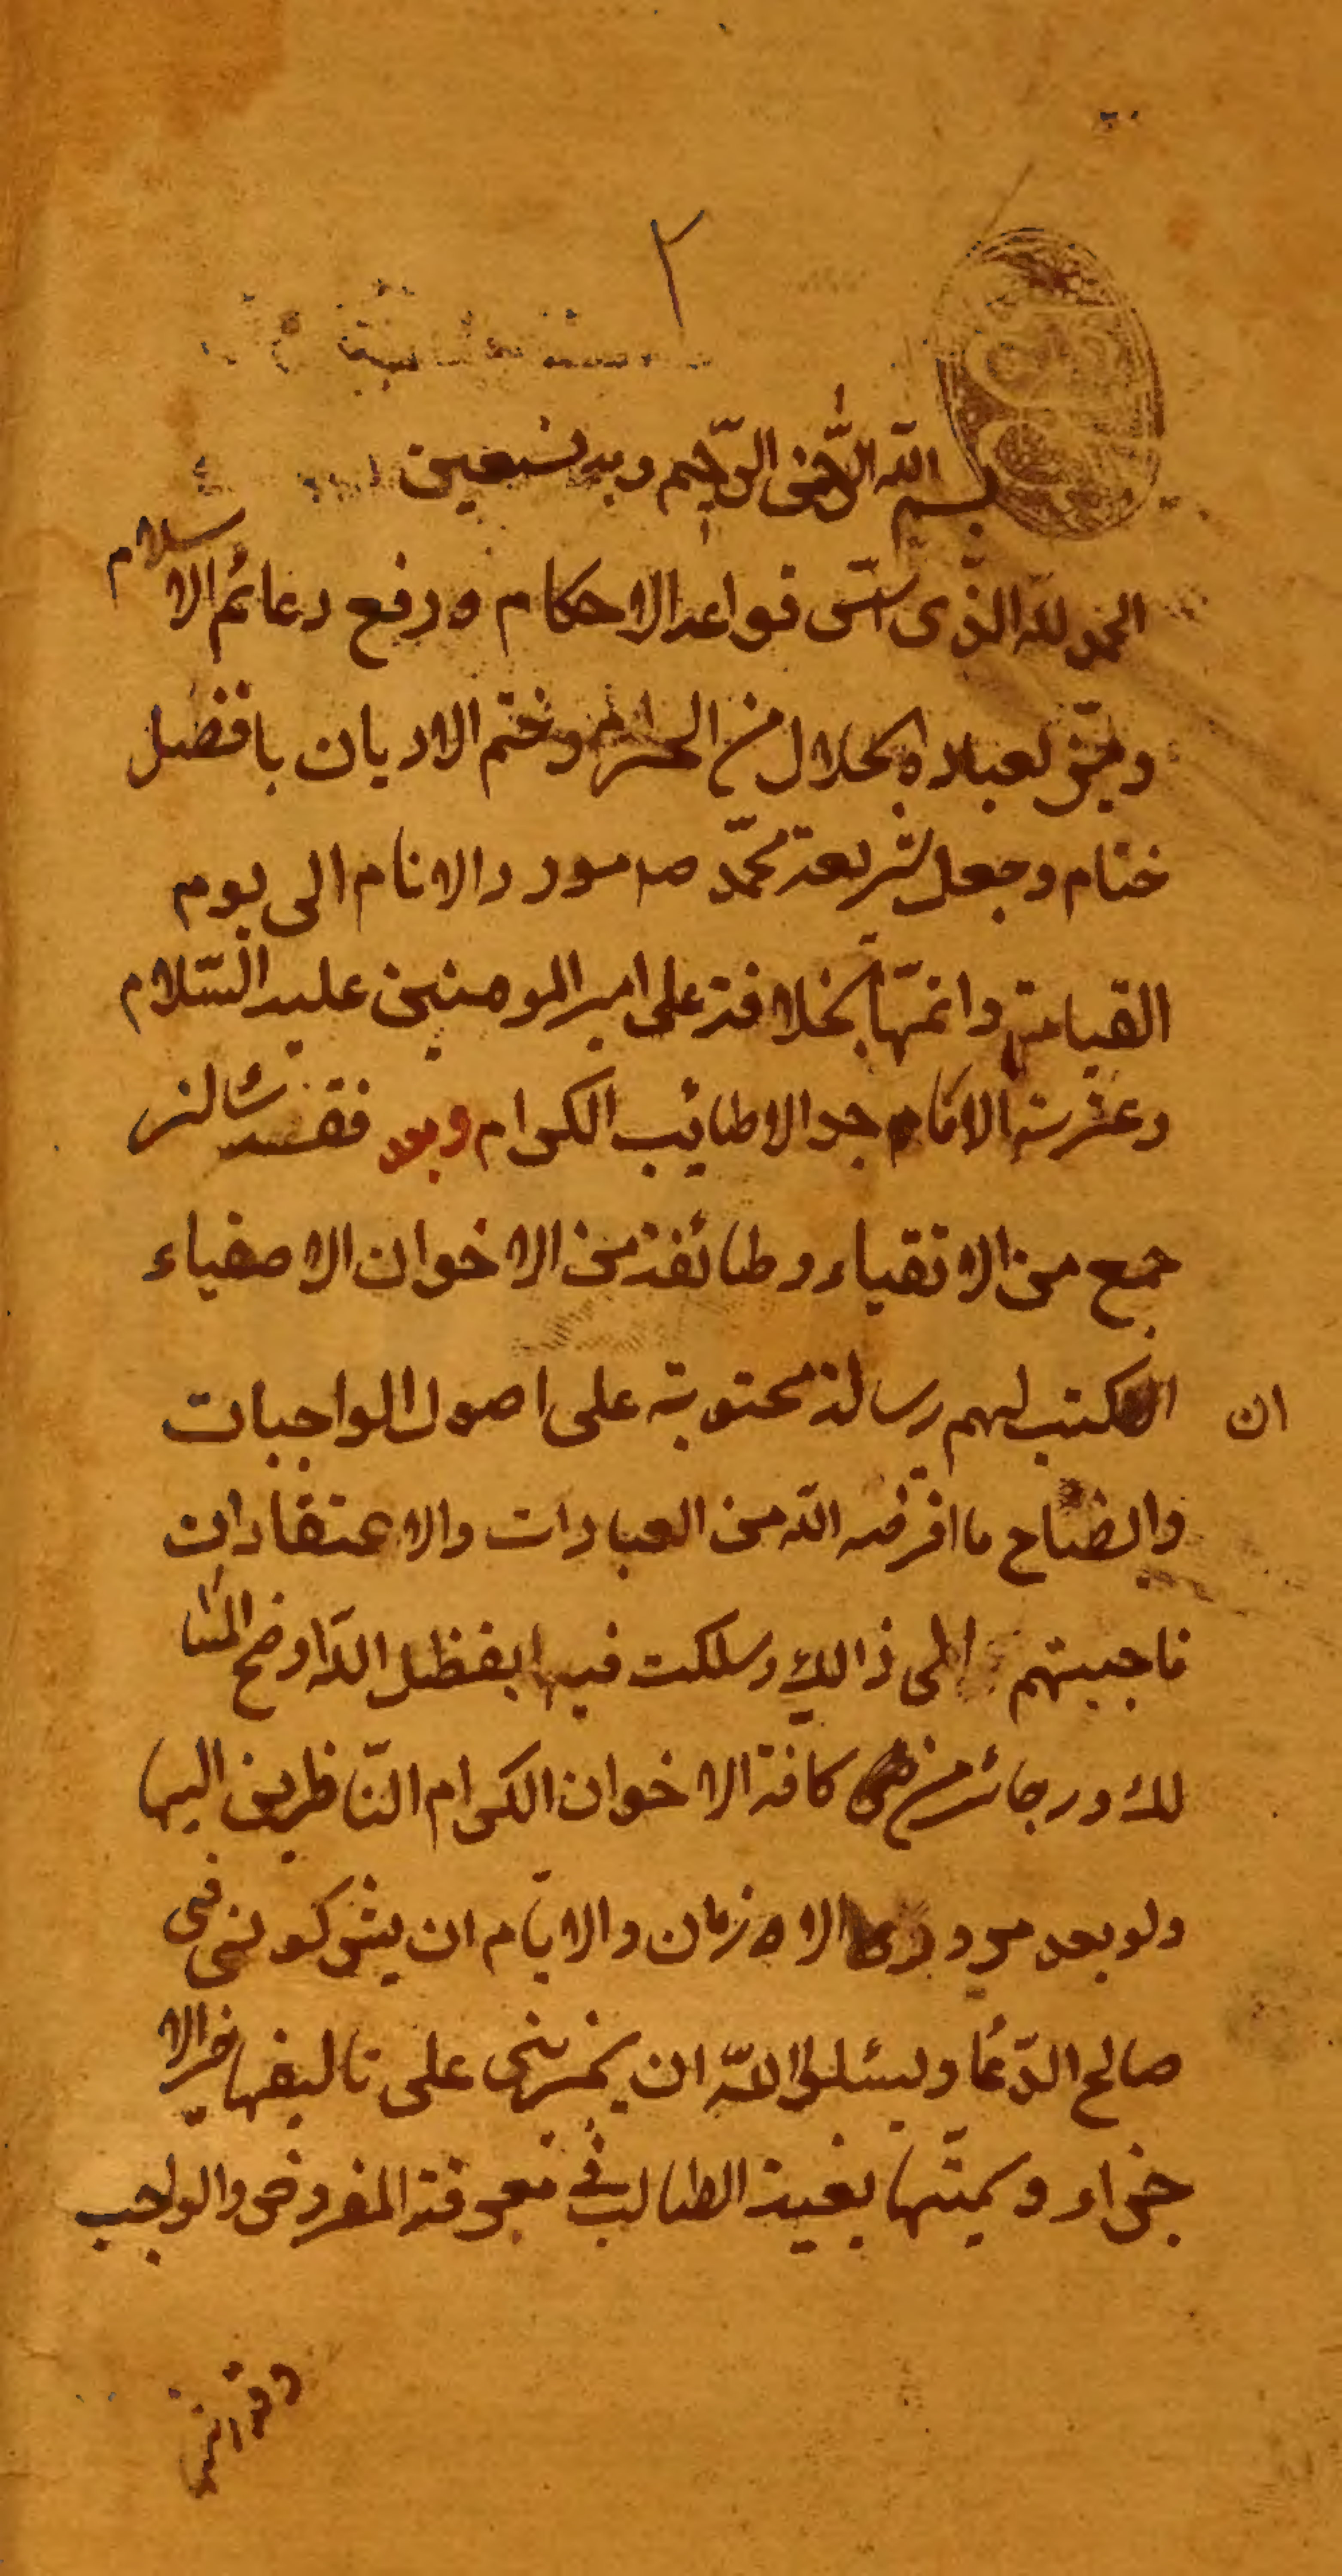 ٢
بسم الله الرّحمن الرّحيم وبه نستعين
الحمد لله الذّى اسّس قواعد الاحكام ورفع دعائم الاسلام
وميّز لعباده الحلال من الحرام وختم الاديان بافضل
ختام وجعل شريعة محمّد ص مورد الانام الى يوم
القيامة واتمّها بخلافة على امير المومنين عليه السّلام
وعترته الاطايب الكرام وبعد فقد سئالنى
جمع من الاتقياء وطائفة من الاخوان الاصفياء
ان اكتب لهم رسالة محتوية على اصول الواجبات
وايضاح ما افرضه الله من العبادات والاعتقادات
فاجبيتهم الى ذالك وسلكت فيها بفظل الله اوضح المسا
لك ورجائى من كافة الاخوان الكرام النّاظرين اليها
ولو بعد مرور الازمان والايّام ان يشركونى فى
صالح الدّعا وليسئلوا الله ان يجزينى على تاليفها خير الا
جزاء وسميّتها بغية الطالب فى معرفة المفروض والواجب